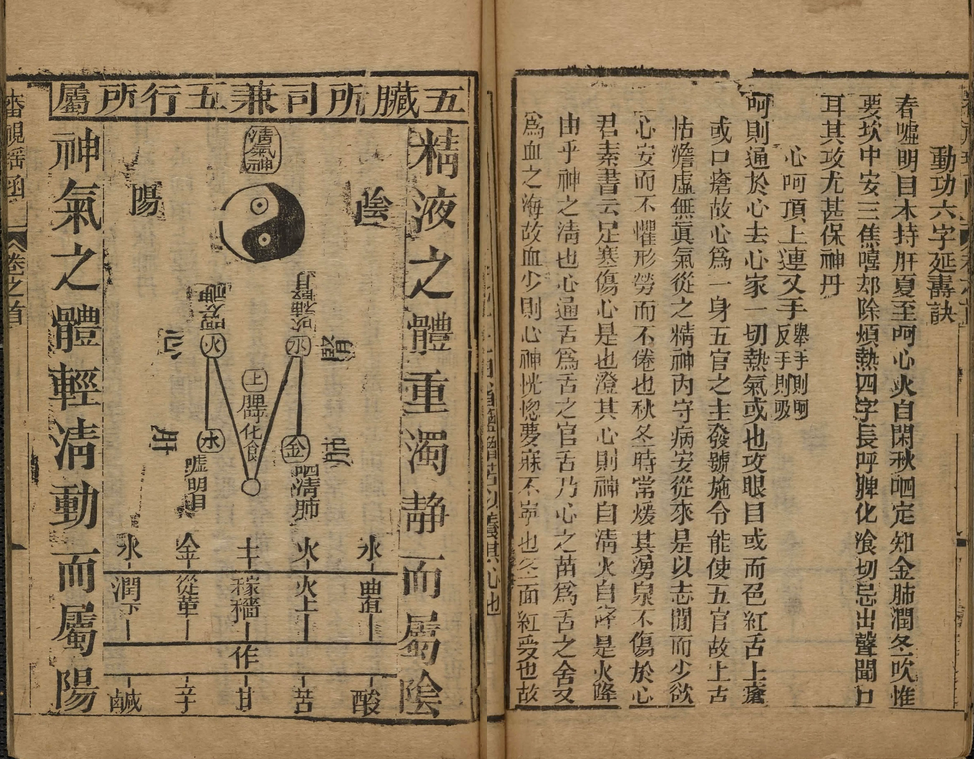 動功六字延壽訣
春噓明目木持肝夏至呵心火自閑秋呬定知金肺潤冬吹惟
要坎中安三焦嘻却除煩熱四字長呼脾化飡切忌出聲聞口
耳其攻尤甚保神丹
心呵頂上連叉手舉手則呵反手則吸
呵則通於心去心家一切熱氣或也攻眼目或而色紅舌上瘡
或口瘡故心爲一身五官之主發號施令能使五官故上古
恬澹虛無眞氣從之精神內守病安從來是以志閒而少欲
心安而不懼形勞而不倦也秋冬時常煖其湧泉不傷於心
君素書云足寒傷心是也澄其心則神自清火自降是火降
由乎神之清也心通舌爲舌之官舌乃心之苗爲舌之舍又
爲血之海故血少則心神恍惚夢寐不寧也冬面紅受也故
五臟所司兼五行所屬
精液之體重濁靜而屬陰
陰
清氣神
陽
吹補腎
呵
水
腎
火
土
脾
化飡
金
木
呬清肺
噓明目
木
火
土
金
水
曲直
火上
稼穡
從革
潤下
作
酸
苦
甘
辛
鹹
神氣之體輕清動而屬陽
卷之首